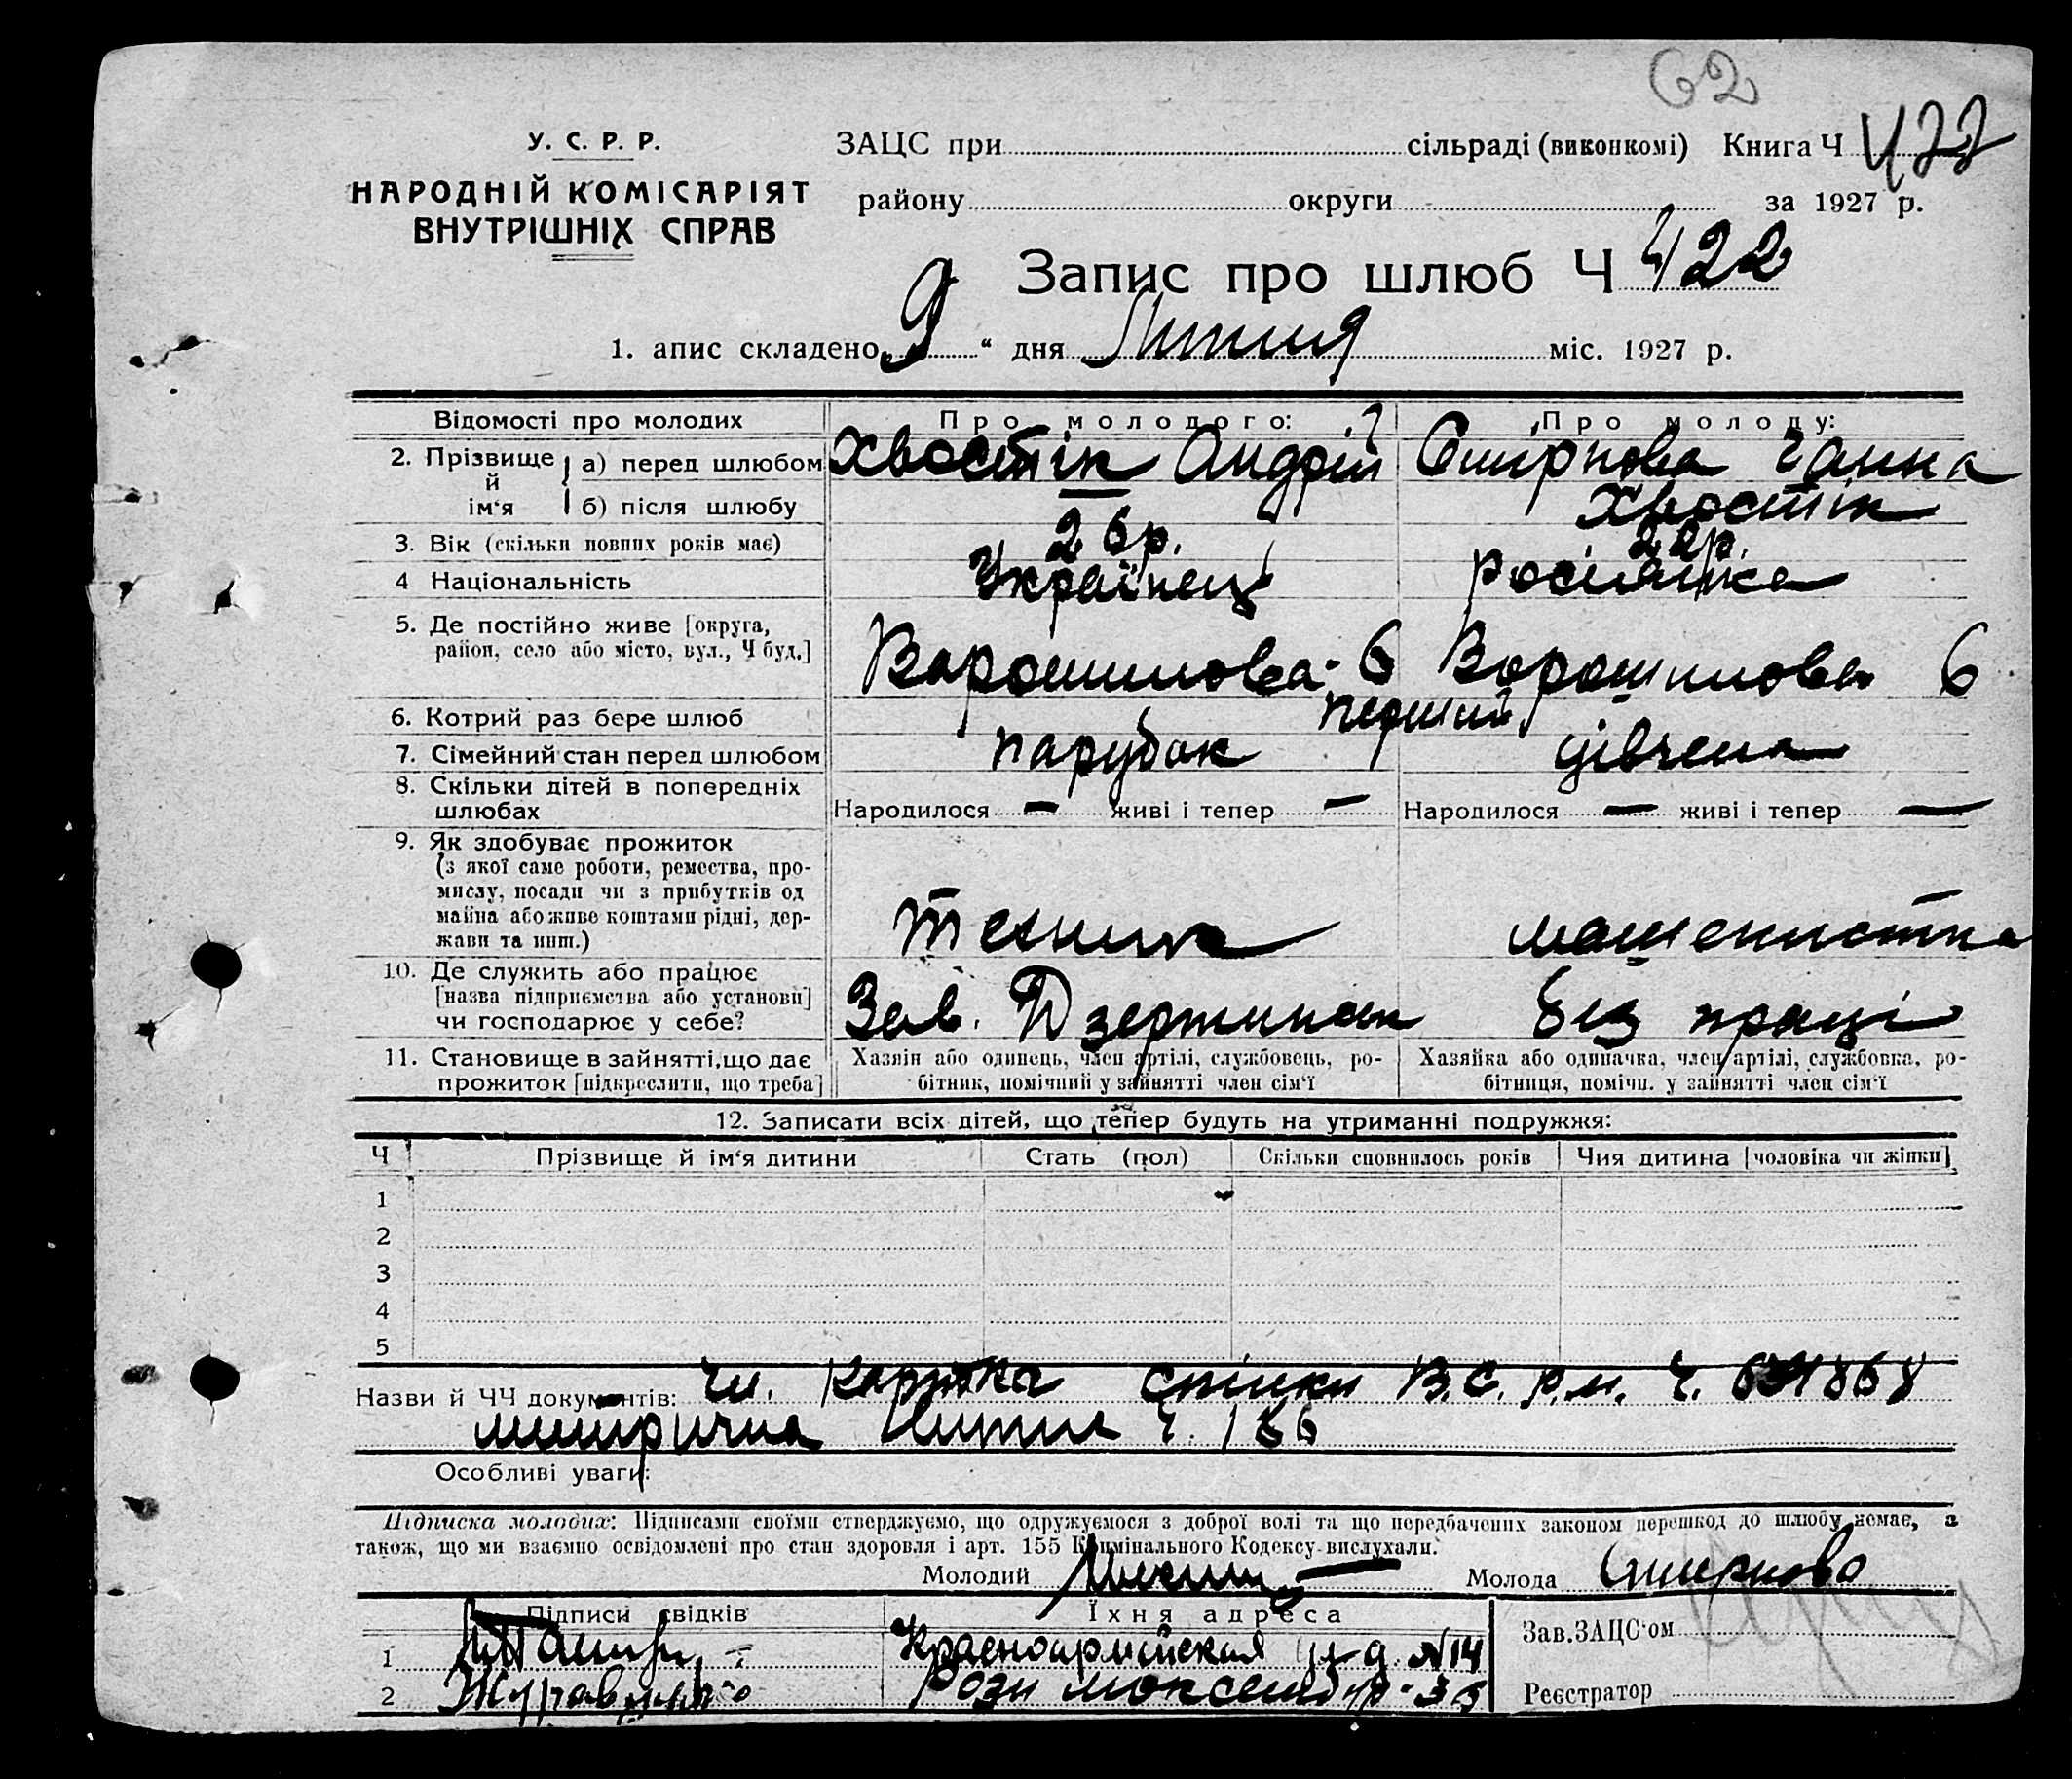 62
У. С. Р. Р.
НАРОДНІЙ КОМІСАРІЯТ
ВНУТРІШНІХ СПРАВ
ЗАЦС при сільраді (виконкомі) Книга Ч 422
району округи за 1927 р.
Запис про шлюб Ч 422
1. апис складено „9“ дня Липня міс. 1927 р.
Відомості про молодих Про молодого: Про молоду:
2. Прізвище й ім‘я а) перед шлюбом Хвостік Андрій Смірнова Ганна
б) після шлюбу Хвостік
3. Вік (скільки повних років має) 26 р. 22 р.
4 Національність Українець росіянка
5. Де постійно живе [округа, район, село або місто, вул., Ч буд.] Варошилова 6 Ворошилова 6
6. Котрий раз бере шлюб перший
7. Сімейний стан перед шлюбом парубок дівчена
8. Скільки дітей в попередніх шлюбах Народилося — живі і тепер — Народилося — живі і тепер —
9. Як здобуває прожиток
(з якої саме роботи, ремества, про-
мислу, посади чи з прибутків од
майна або живе коштами рідні, дер-
жави та инш.) машеністка
10. Де служить або працює
[назва підприємства або установи]
чи господарює у себе? Зав. Дзержинськ без праці
11. Становище в зайнятті, що дає
прожиток [підкреслити, що треба]
Хазяін або одинець, член артілі, службовець, ро-
бітник, помічний у зайнятті член сім‘ї
Хазяйка або одиначка, член артілі, службовка, ро-
бітниця, помічн. у зайнятті член сім‘ї
12. Записати всіх дітей, що тепер будуть на утриманні подружжя:
Ч Прізвище й ім‘я дитини Стать (пол) Скільки сповнилось років Чия дитина [чоловіка чи жінки]
1
2
3
4
5
Назви й ЧЧ документів: Чл. картка спілки В.С.Р.М. Ч.
Ч. 186
Особливі уваги:
Підписка молодих: Підписами своїми стверджуємо, що одружуємося з доброї волі та що передбачених законом перешкод до шлюбу немає, а
також, що ми взаємно освідомлені про стан здоровля і арт. 155 Кримінального Кодексу вислухали.
Молодий Молода Смирнова
Підписи свідків Їхня адреса
1 Красноармейская №14
2 Рози
Зав. ЗАЦС‘ом
Реєстратор